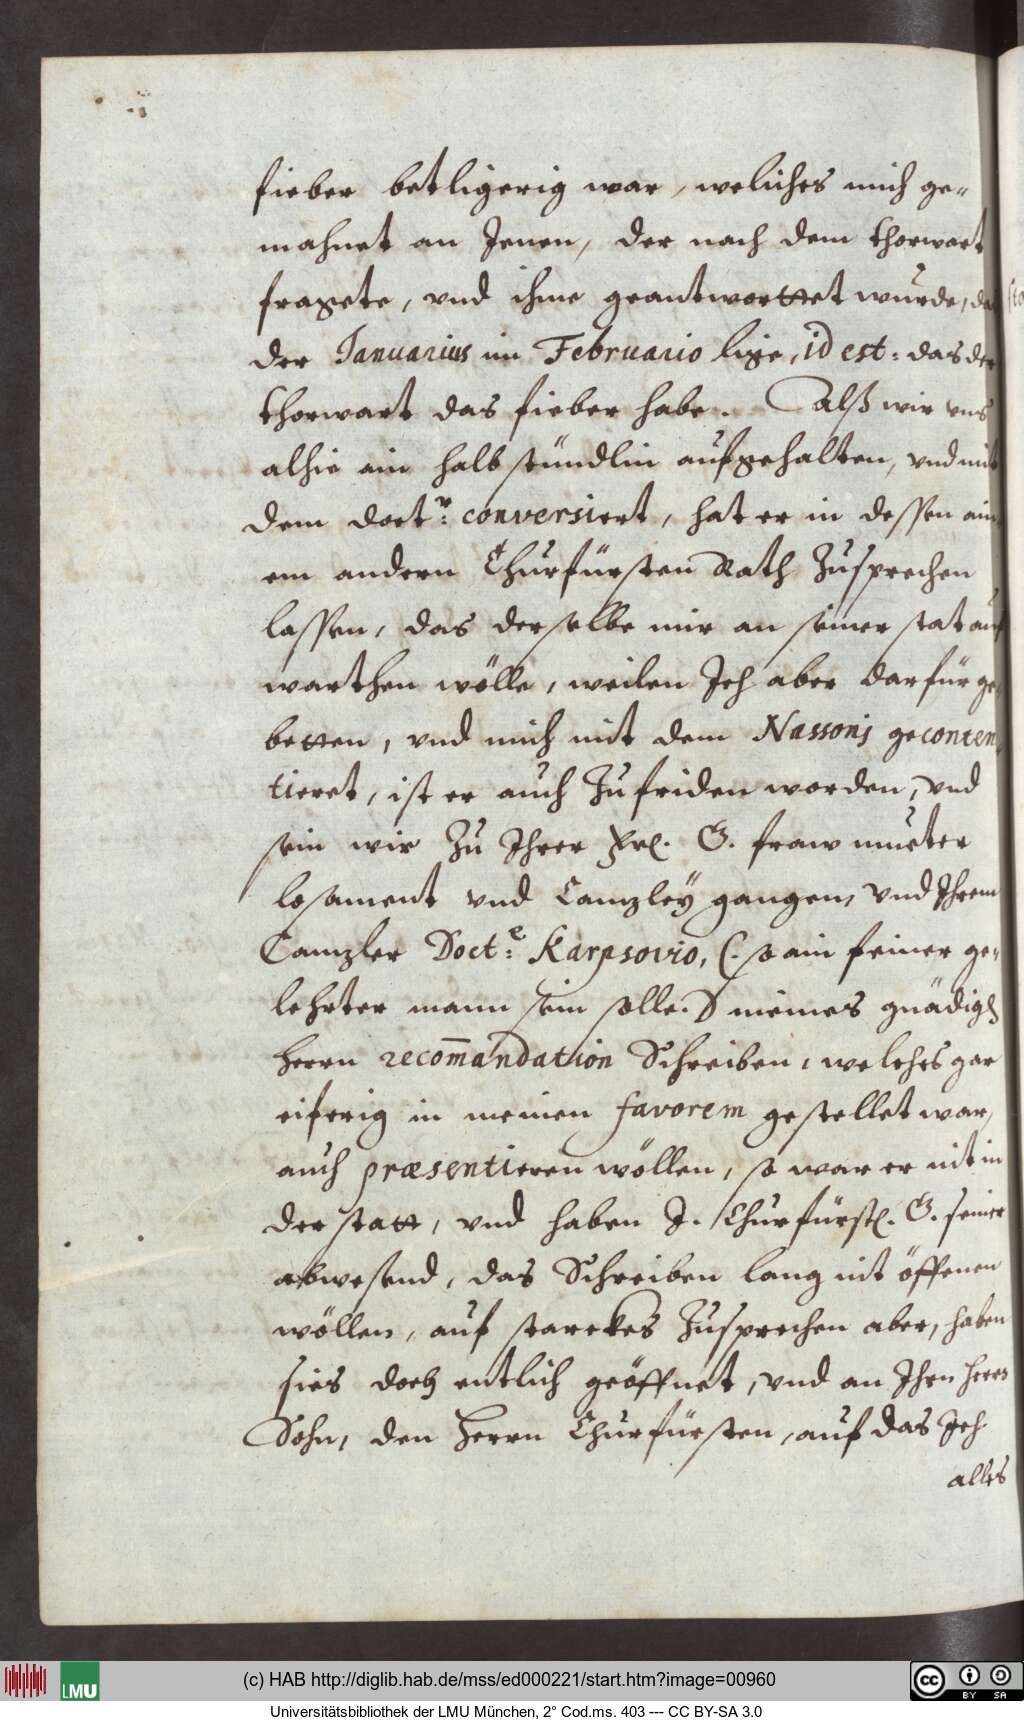 fieber betligerig war, weliches mich ge-
mahnet an Jenen, der nach dem thorwart
fragete, vnd ihme geantworttet wurde, das
der Januarius im Februario lige, id est: das der
thorwart das fieber habe. alß wir vns
alhie ain halb stündlin aufgehalten, vnd mit
dem doctr: conversiert, hat er in dessen ain
em andern Churfürsten Rath Zusprechen
lassen, das derselbe mir an seiner stat auf
warthen wölle, weilen Jch aber darfür ge-
betten, vnd mich mit dem Nassonj geconten-
tieret, ist er auch Zufriden worden, vnd
sein wir Zu Ihrer G. fraw mutter
losament vnd Canzleÿ gangen, vnd Ihrem
Canzler Doct: Karpsovio, (: so ain feiner ge-
lehrter mann sein solle.) meines gnädigen
herrn recom̄andation Schreiben, welches gar
eiferig in meinen favorem gestellet war,
auch præsentieren wöllen, so war er nit in
der statt, vnd haben J. Churfürstl. G. seiner
abwesend, das Schreiben lang nit öffenen
wöllen, auf starckes Zusprechen aber, haben
sies doch entlich geöffnet, vnd an Ihrn herrn
Sohn, den Herrn Churfürsten, auf das Jch
alles
(c) HAB http://diglib.hab.de/mss/ed000221/start.htm?image=00960
LMU
cc BY SA
Universitätsbibliothek der LMU München, 2° Cod.ms. 403 --- CC BY-SA 3.0